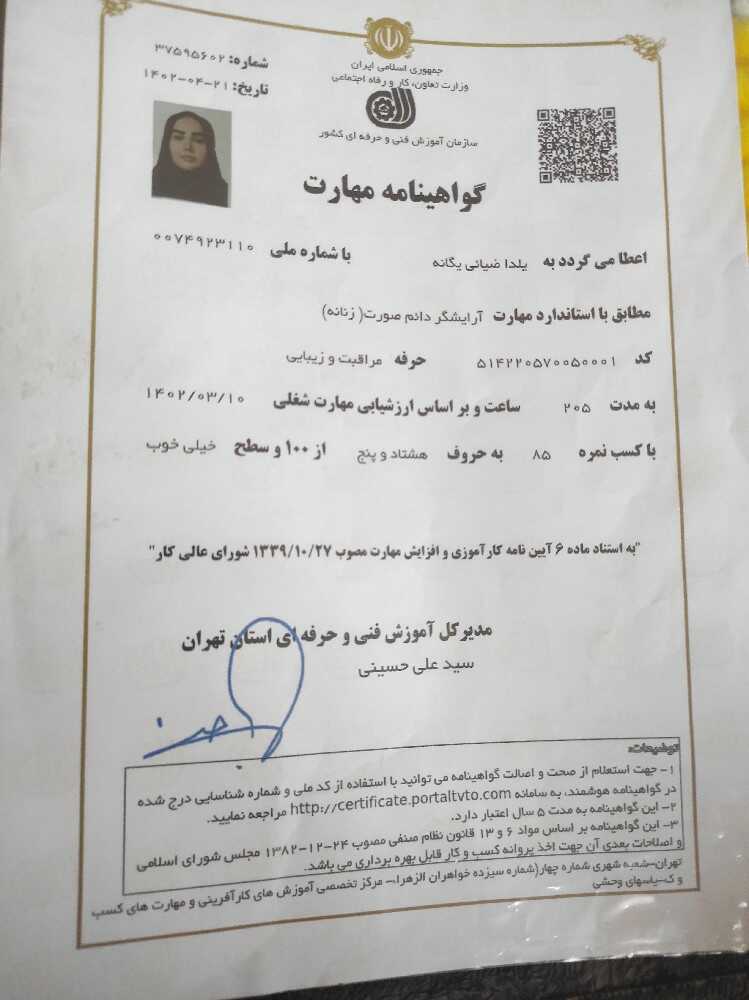 جمهوری اسلامی ایران
وزارت تعاون، کار و رفاه اجتماعی
سازمان آموزش فنی و حرفه ای کشور
شماره: ۳۷۵۹۵۶۰۲
تاریخ: ۱۴۰۲-۰۴-۲۱
گواهینامه مهارت
اعطا می گردد به یلدا ضیائی یگانه با شماره ملی ۰۰۷۴۹۲۳۱۱۰
مطابق با استاندارد مهارت آرایشگر دائم صورت( زنانه)
کد ۵۱۴۲۲۰۵۷۰۰۵۰۰۰۱ حرفه مراقبت و زیبایی
به مدت ۲۰۵ ساعت و بر اساس ارزشیابی مهارت شغلی ۱۴۰۲/۰۳/۱۰
با کسب نمره ۸۵ به حروف هشتاد و پنج از ۱۰۰ و سطح خیلی خوب
"به استناد ماده ۶ آیین نامه کارآموزی و افزایش مهارت مصوب ۱۳۳۹/۱۰/۲۷ شورای عالی کار"
مدیرکل آموزش فنی و حرفه ای استان تهران
سید علی حسینی
توضیحات:
۱- جهت استعلام از صحت و اصالت گواهینامه می توانید با استفاده از کد ملی و شماره شناسایی درج شده
در گواهینامه هوشمند، به سامانه http://certificate.portaltvto.com مراجعه نمایید.
۲- این گواهینامه به مدت ۵ سال اعتبار دارد.
۳- این گواهینامه بر اساس مواد ۶ و ۱۳ قانون نظام صنفی مصوب ۲۴-۱۲-۱۳۸۲ مجلس شورای اسلامی
و اصلاحات بعدی آن جهت اخذ پروانه کسب و کار قابل بهره برداری می باشد.
تهران-شعبه شهری شماره چهار(شماره سیزده خواهران الزهرا)- مرکز تخصصی آموزش های کارآفرینی و مهارت های کسب
و ک-یاسهای وحشی